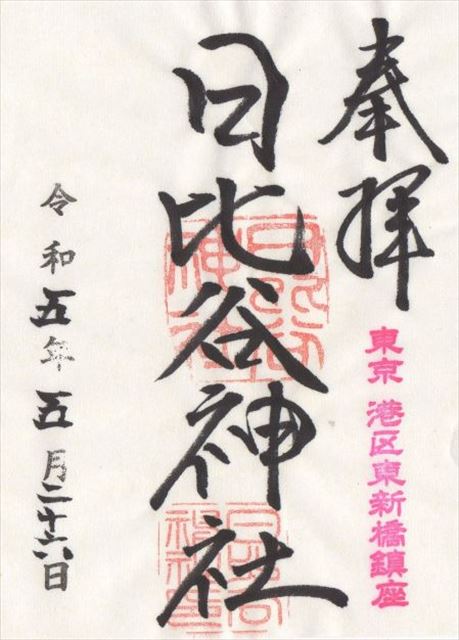 奉拝
東京 港区東新橋鎮座
日比谷神社
日比谷神社
令和五年五月二十六日